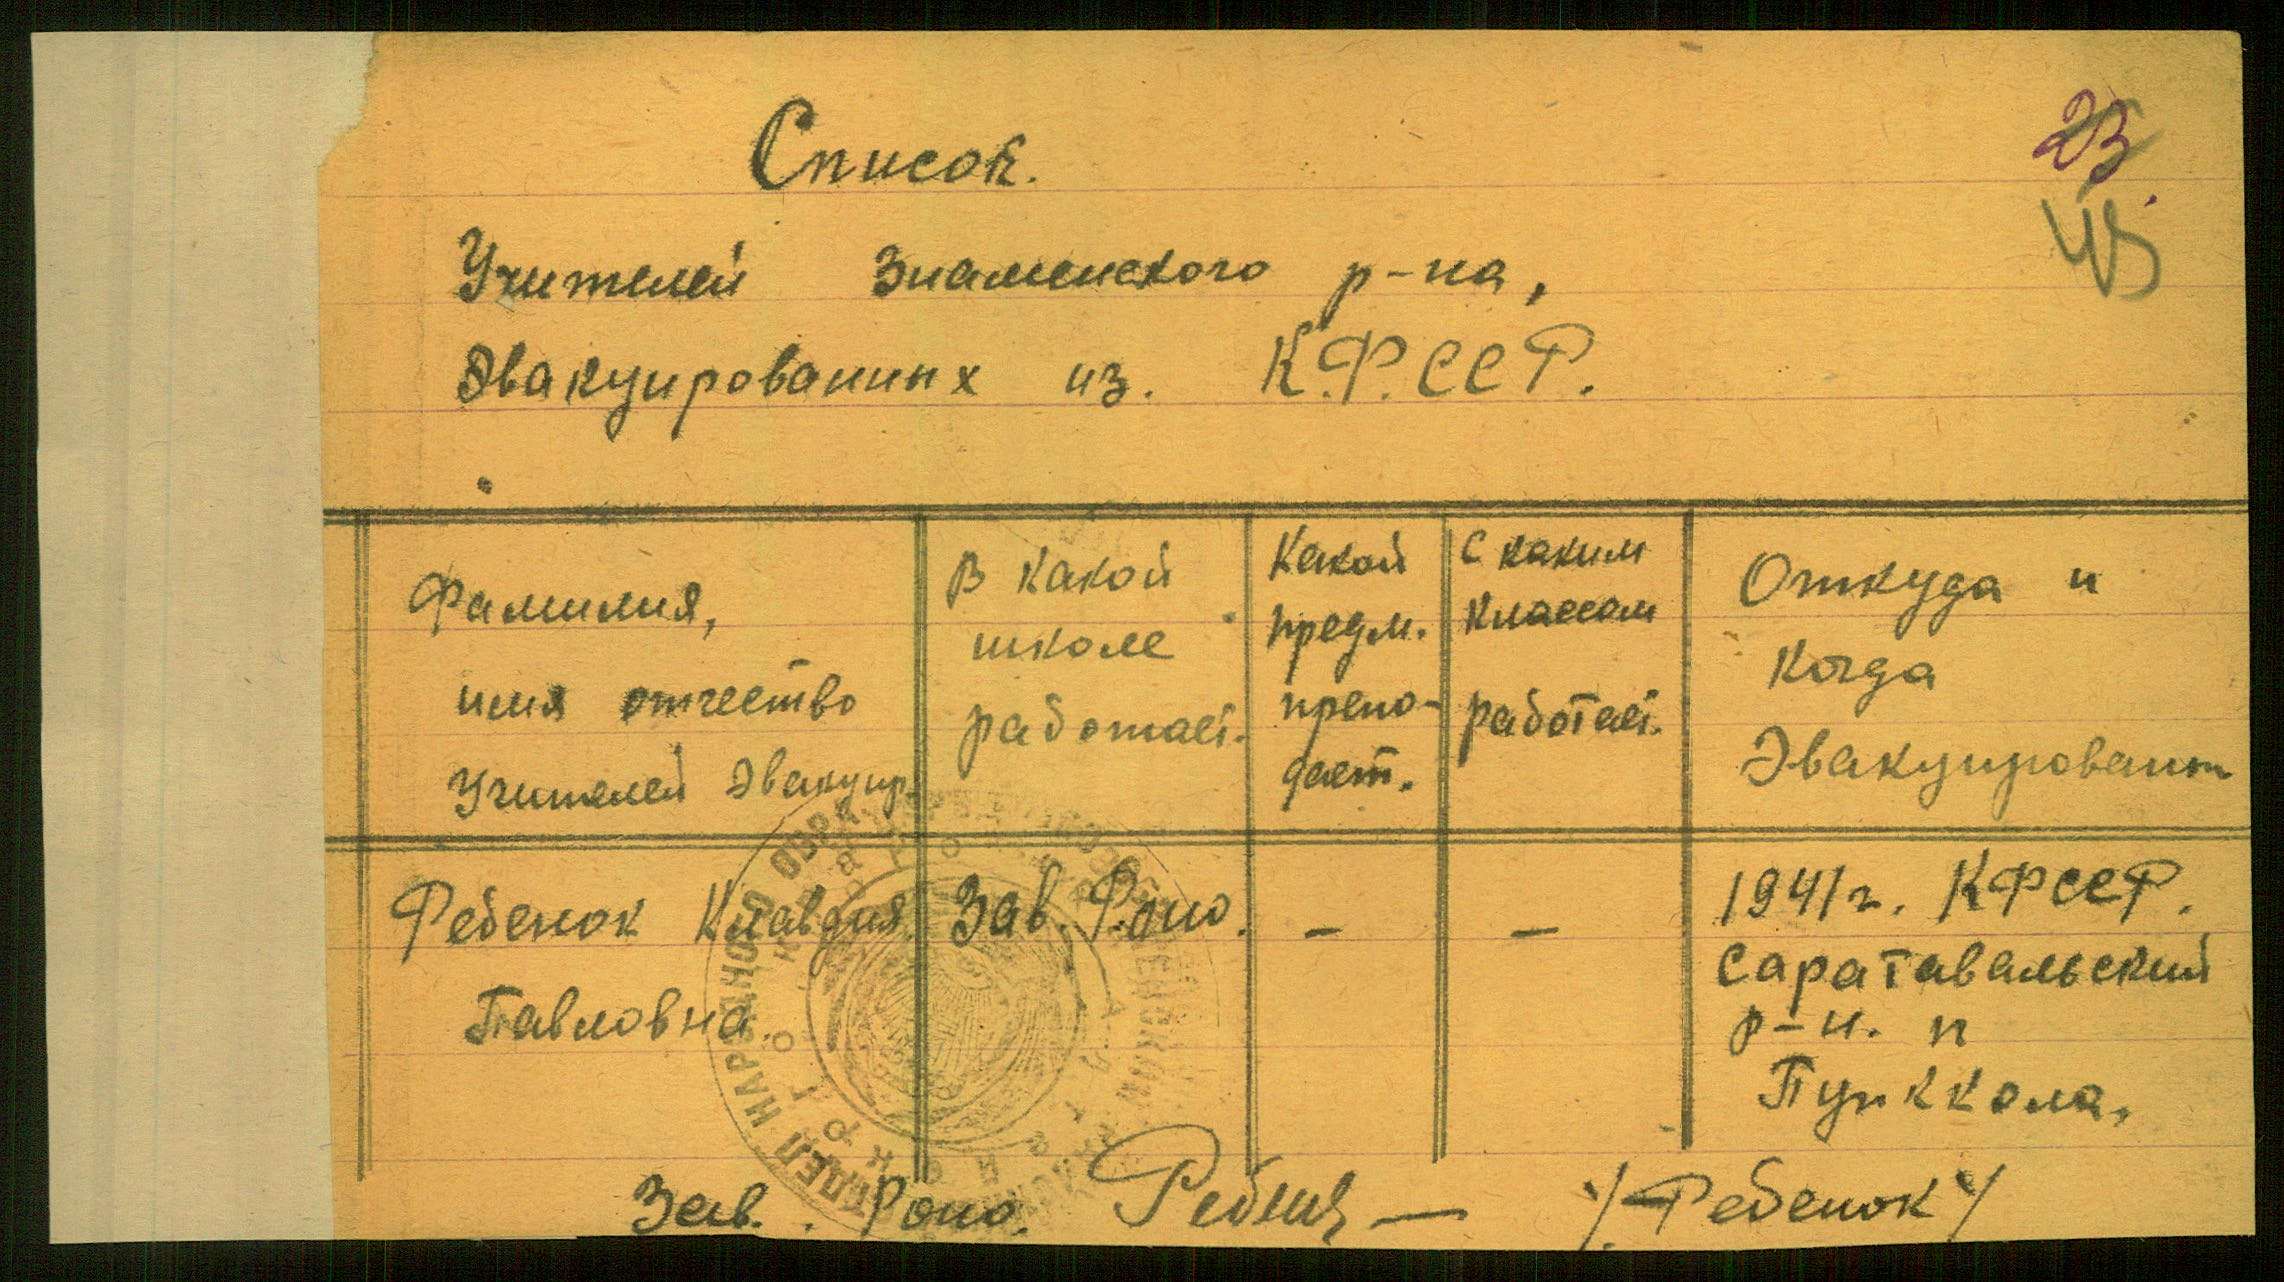 Список.
23
45
Учителей Знаменского р-на,
Эвакуированных из. К.Ф.ССР.
Фамилия,
имя отчество
Учителей Эвакуир.
В какой
школе
работает.
Какой
предм.
препо-
дает.
С каким
классом
работает.
Откуда и
когда
Эвакуирован
Ребенок Клавдия
Павловна.
Зав. Роно.
–
–
1941 г. КФССР.
Саратавальский
р-н. п
Пуйккола.
Зав. Роно. — /Ребенок/
ОТДЕЛ НАРОДНОГО ОБРАЗ